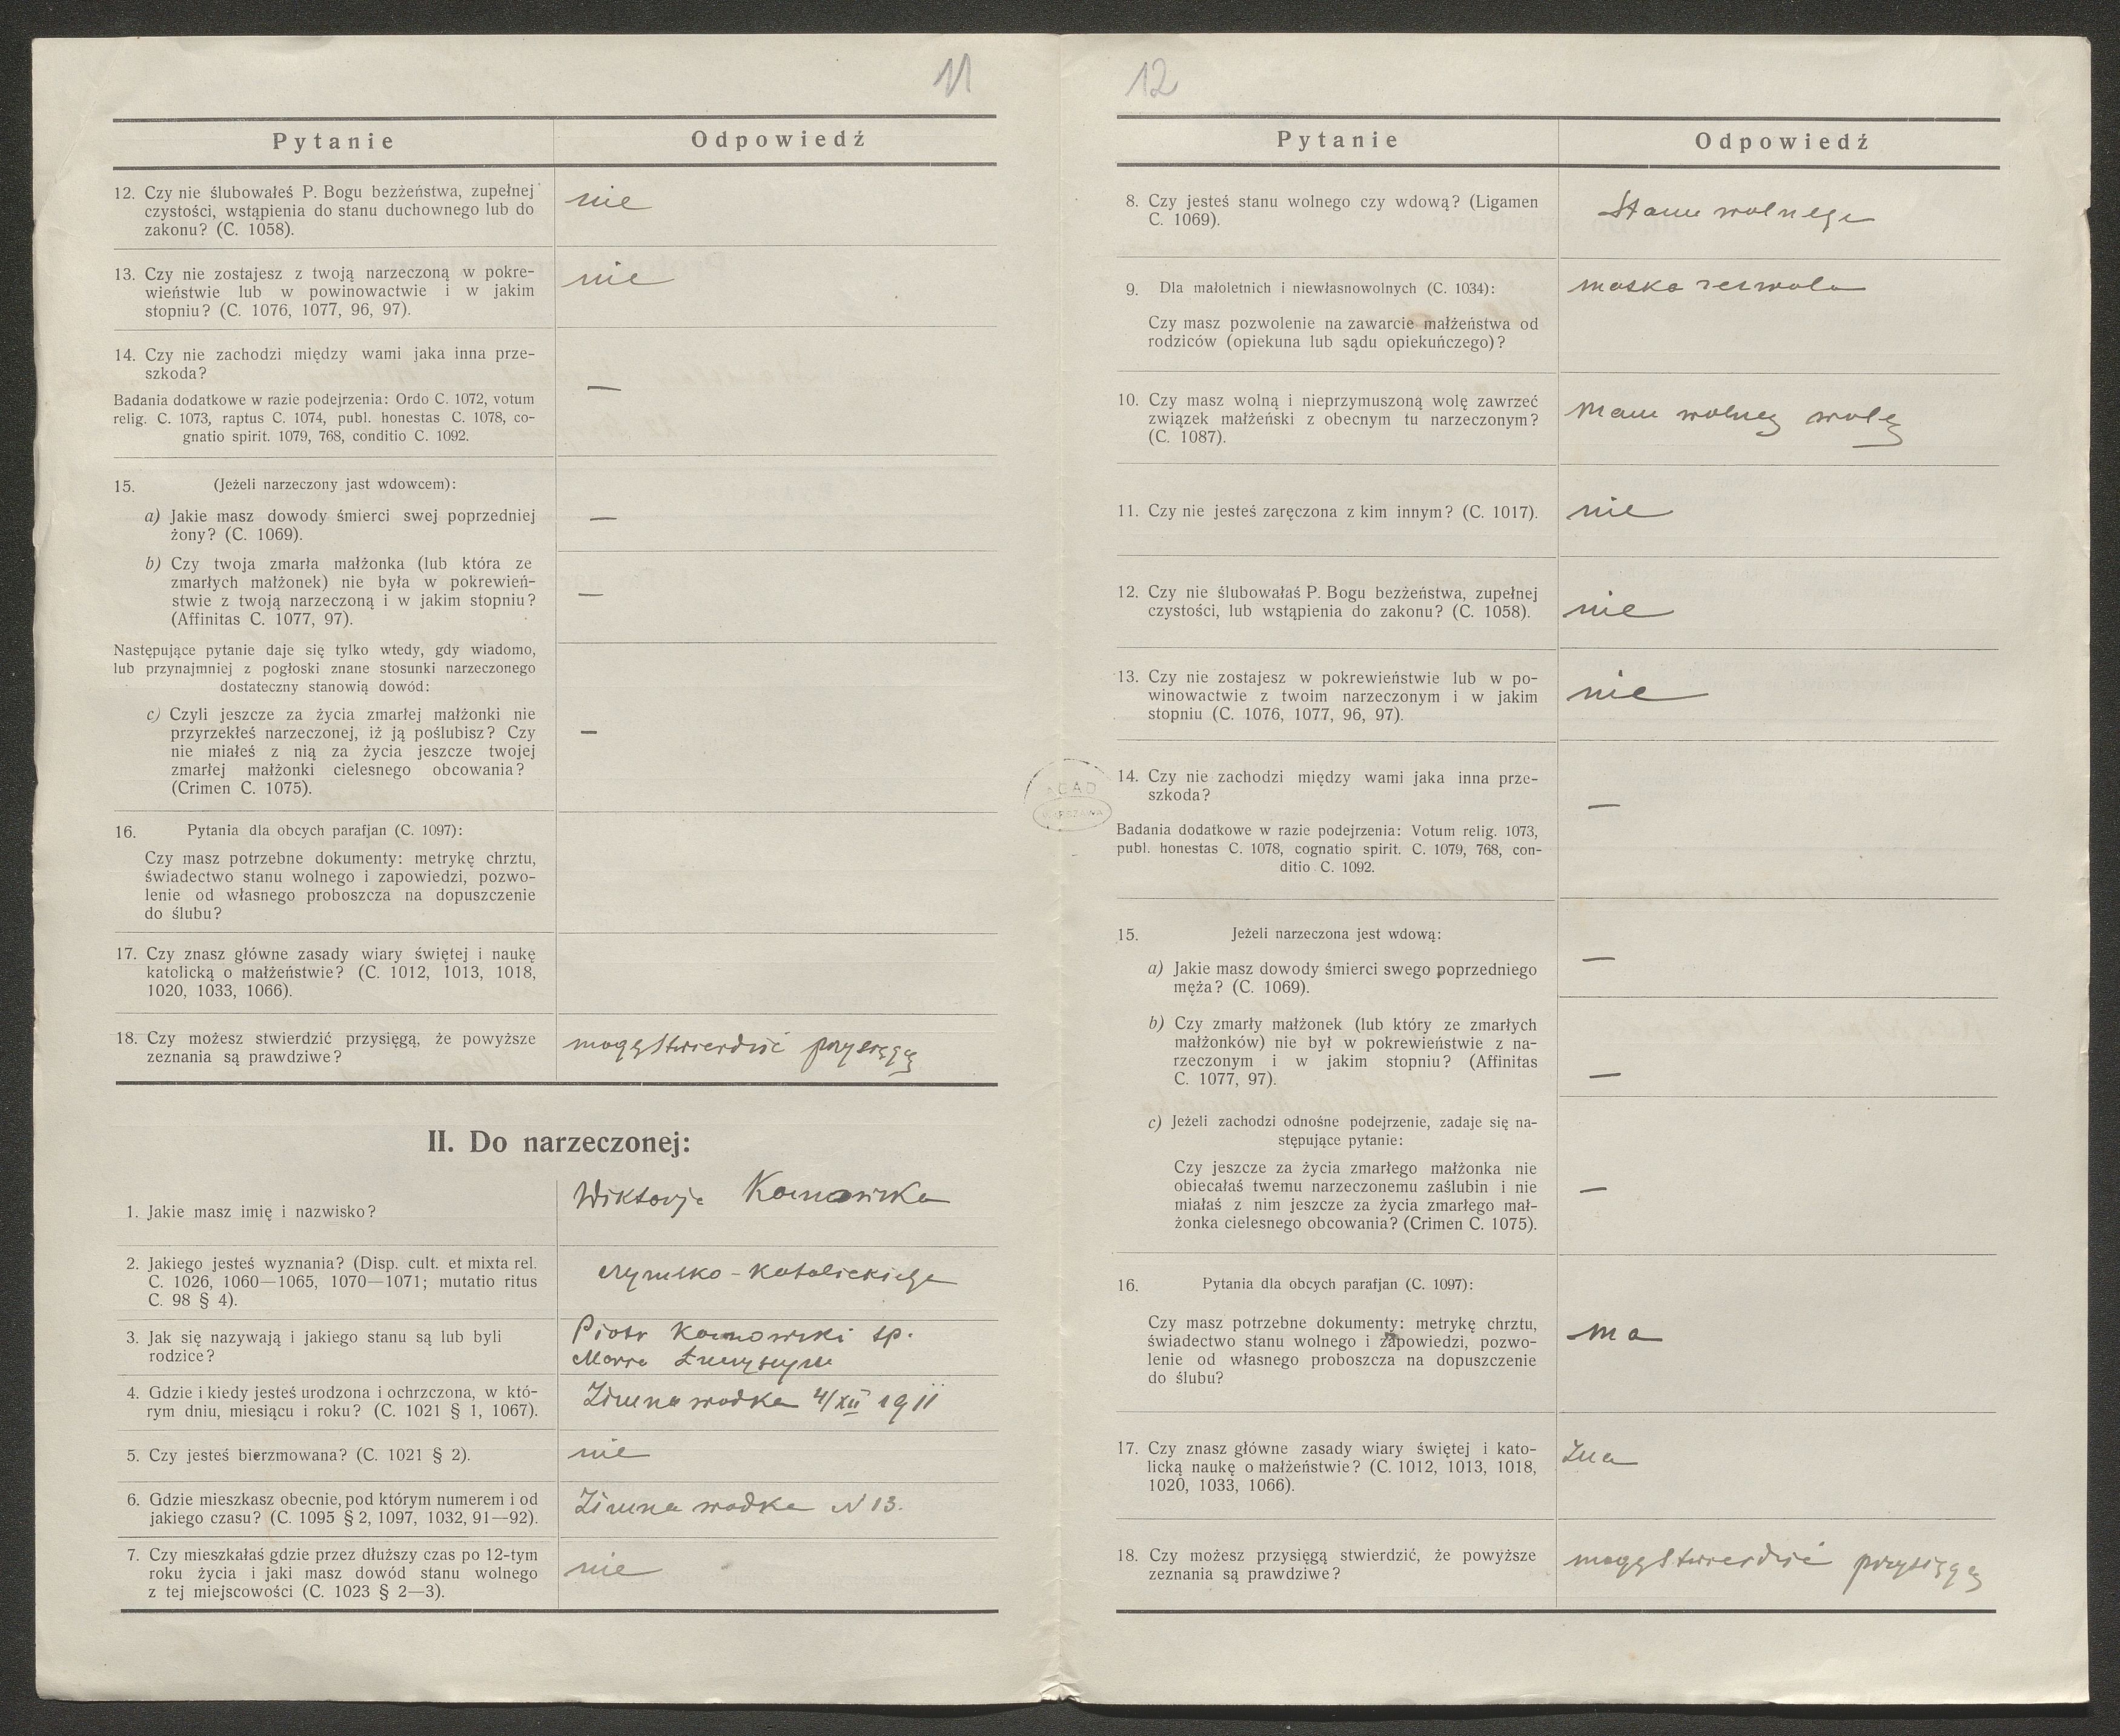 11
Pytanie
Odpowiedź
12. Czy nie ślubowałeś P. Bogu bezżeństwa, zupełnej
czystości, wstąpienia do stanu duchownego lub do
zakonu? (C. 1058).
nie
13. Czy nie zostajesz z twoją narzeczoną w pokre-
wieństwie lub w powinowactwie i w jakim
stopniu? (C. 1076, 1077, 96, 97).
nie
14. Czy nie zachodzi między wami jaka inna prze-
szkoda?
Badania dodatkowe w razie podejrzenia: Ordo C. 1072, votum
relig. C. 1073, raptus C. 1074, publ. honestas C. 1078, co-
gnatio spirit. 1079, 768, conditio C. 1092.
—
15. (Jeżeli narzeczony jast wdowcem):
a) Jakie masz dowody śmierci swej poprzedniej
żony? (C. 1069).
—
b) Czy twoja zmarła małżonka (lub która ze
zmarłych małżonek) nie była w pokrewień-
stwie z twoją narzeczoną i w jakim stopniu?
(Affinitas C. 1077, 97).
—
Następujące pytanie daje się tylko wtedy, gdy wiadomo,
lub przynajmniej z pogłoski znane stosunki narzeczonego
dostateczny stanowią dowód:
c) Czyli jeszcze za życia zmarłej małżonki nie
przyrzekłeś narzeczonej, iż ją poślubisz? Czy
nie miałeś z nią za życia jeszcze twojej
zmarłej małżonki cielesnego obcowania?
(Crimen C. 1075).
—
16. Pytania dla obcych parafjan (C. 1097):
Czy masz potrzebne dokumenty: metrykę chrztu,
świadectwo stanu wolnego i zapowiedzi, pozwo-
lenie od własnego proboszcza na dopuszczenie
do ślubu?
17. Czy znasz główne zasady wiary świętej i naukę
katolicką o małżeństwie? (C. 1012, 1013, 1018,
1020, 1033, 1066).
18. Czy możesz stwierdzić przysięgą, że powyższe
zeznania są prawdziwe?
mogę stwierdzić przysięgą
II. Do narzeczonej:
1. Jakie masz imię i nazwisko?
Wiktorja
2. Jakiego jesteś wyznania? (Disp. cult. et mixta rel.
C. 1026, 1060—1065, 1070—1071; mutatio ritus
C. 98 § 4).
rzymsko-katolickiego
3. Jak się nazywają i jakiego stanu są lub byli
rodzice?
Piotr sp.
Marja
4. Gdzie i kiedy jesteś urodzona i ochrzczona, w któ-
rym dniu, miesiącu i roku? (C. 1021 § 1, 1067).
Zimna wodka 4/XII 1911
5. Czy jesteś bierzmowana? (C. 1021 § 2).
nie
6. Gdzie mieszkasz obecnie, pod którym numerem i od
jakiego czasu? (C. 1095 § 2, 1097, 1032, 91—92).
Zimna wodka N 13.
7. Czy mieszkałaś gdzie przez dłuższy czas po 12-tym
roku życia i jaki masz dowód stanu wolnego
z tej miejscowości (C. 1023 § 2—3).
nie
12
Pytanie
Odpowiedź
8. Czy jesteś stanu wolnego czy wdową? (Ligamen
C. 1069).
Stanu wolnego
9. Dla małoletnich i niewłasnowolnych (C. 1034):
Czy masz pozwolenie na zawarcie małżeństwa od
rodziców (opiekuna lub sądu opiekuńczego)?
matka zezwala
10. Czy masz wolną i nieprzymuszoną wolę zawrzeć
związek małżeński z obecnym tu narzeczonym?
(C. 1087).
Mam wolną wolę
11. Czy nie jesteś zaręczona z kim innym? (C. 1017).
nie
12. Czy nie ślubowałaś P. Bogu bezżeństwa, zupełnej
czystości, lub wstąpienia do zakonu? (C. 1058).
nie
13. Czy nie zostajesz w pokrewieństwie lub w po-
winowactwie z twoim narzeczonym i w jakim
stopniu (C. 1076, 1077, 96, 97).
nie
AGAD
WARSZAWA
14. Czy nie zachodzi między wami jaka inna prze-
szkoda?
Badania dodatkowe w razie podejrzenia: Votum relig. 1073,
publ. honestas C. 1078, cognatio spirit. C. 1079, 768, con-
ditio C. 1092.
—
15. Jeżeli narzeczona jest wdową:
a) Jakie masz dowody śmierci swego poprzedniego
męża? (C. 1069).
—
b) Czy zmarły małżonek (lub który ze zmarłych
małżonków) nie był w pokrewieństwie z na-
rzeczonym i w jakim stopniu? (Affinitas
C. 1077, 97).
—
c) Jeżeli zachodzi odnośne podejrzenie, zadaje się na-
stępujące pytanie:
Czy jeszcze za życia zmarłego małżonka nie
obiecałaś twemu narzeczonemu zaślubin i nie
miałaś z nim jeszcze za życia zmarłego mał-
żonka cielesnego obcowania? (Crimen C. 1075).
—
16. Pytania dla obcych parafjan (C. 1097):
Czy masz potrzebne dokumenty: metrykę chrztu,
świadectwo stanu wolnego i zapowiedzi, pozwo-
lenie od własnego proboszcza na dopuszczenie
do ślubu?
ma
17. Czy znasz główne zasady wiary świętej i kato-
licką naukę o małżeństwie? (C. 1012, 1013, 1018,
1020, 1033, 1066).
Zna
18. Czy możesz przysięgą stwierdzić, że powyższe
zeznania są prawdziwe?
mogę stwierdzić przysięgą